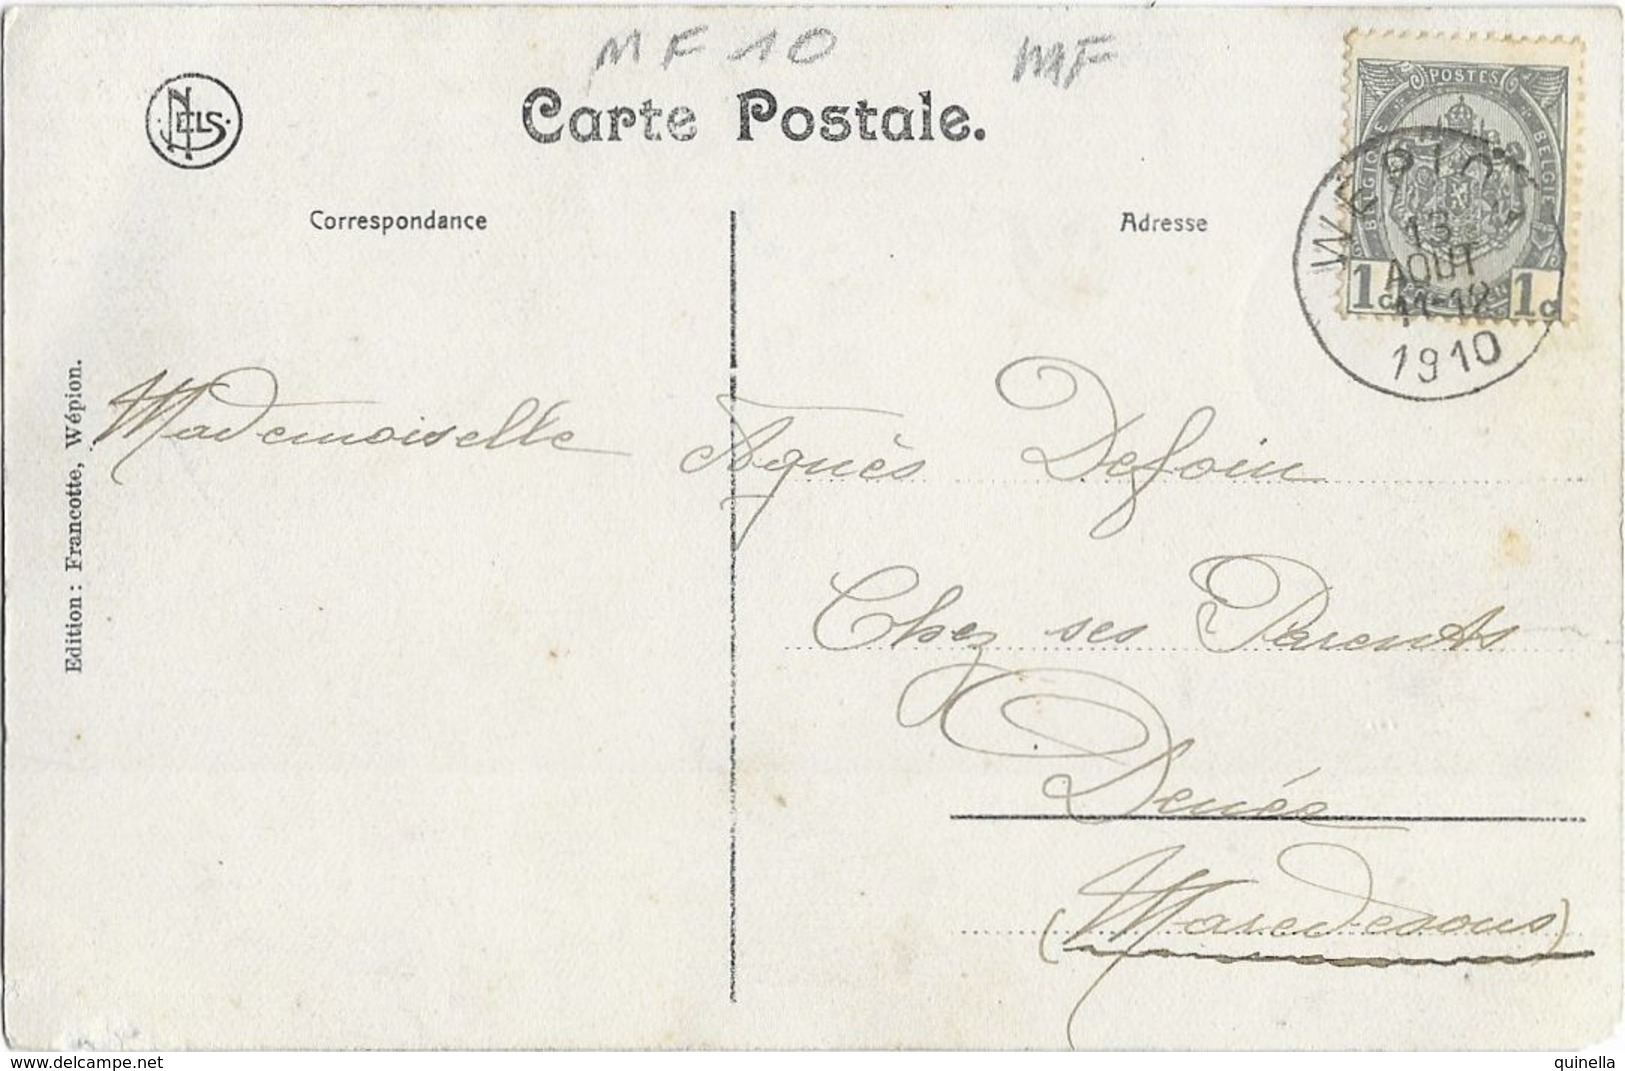 MF 10 MF
NELS
Carte Postale.
POSTES
BELGIQUE
BELGIE
1c 1c
WEPION
13
AOUT
11-12
1910
Correspondance
Adresse
Edition : Francotte, Wépion.
Mademoiselle Agnès Defoin
Chez ses Parents
Denée
(Maredesous)
www.delcampe.net
quinella